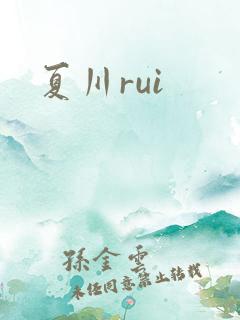 夏川rui
孫金雲
未经同意禁止转载